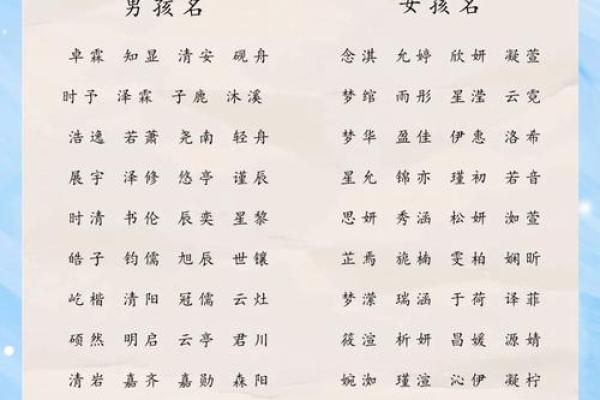 男孩名
卓霖 知显 清安 砚舟
时予 泽霖 子鹿 沐溪
浩逸 若萧 尧南 轻舟
展宇 泽修 悠亭 谨辰
时清 书伦 辰奕 星黎
皓子 钧儒 旭辰 世镶
屹楷 清阳 冠儒 云灶
硕然 明启 云亭 君川
清岩 嘉齐 嘉勋 森阳
女孩名
念淇 允婷 欣妍 凝萱
梦绾 雨彤 星滢 云霓
梦华 盈佳 伊惠 洛希
星允 锦亦 瑾初 若音
思妍 秀涵 松妍 洳萱
芷焉 旎楠 雯柏 娴昕
梦潆 瑞涵 于荷 译菲
筱渲 析妍 昌媛 源婧
婉洳 瑾渲 沁伊 凝柠